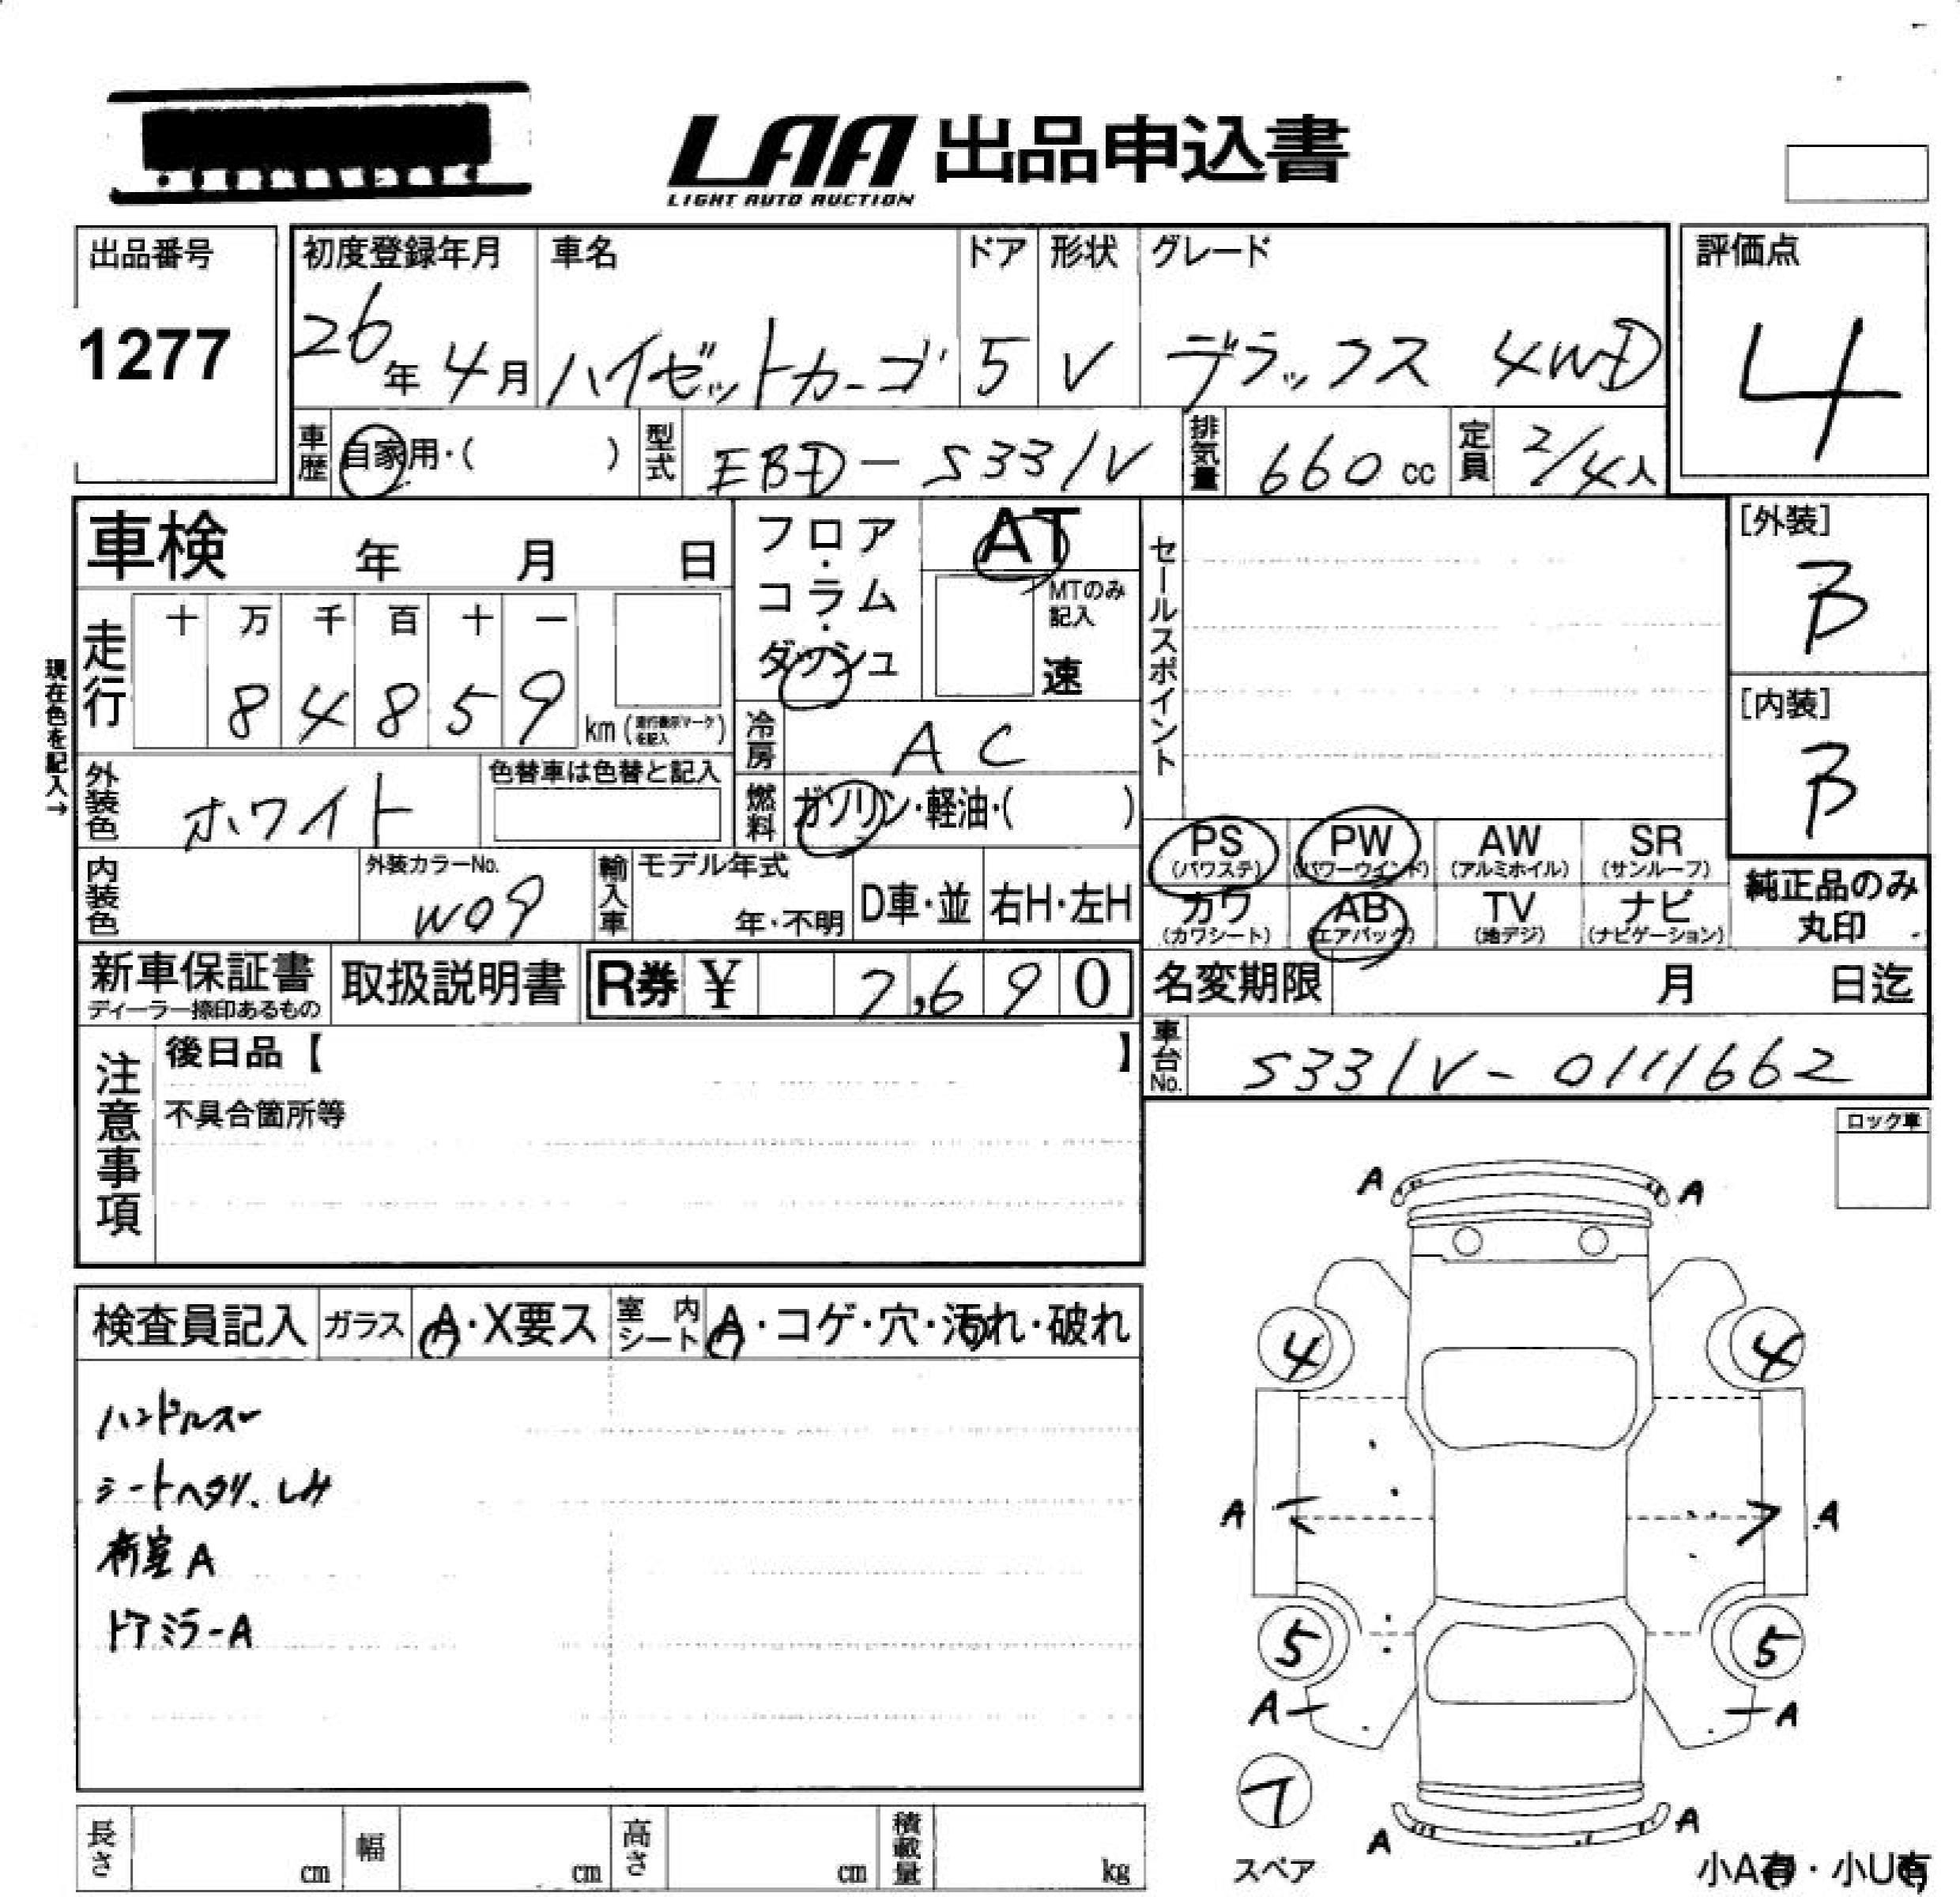 LAA 出品申込書
LIGHT AUTO AUCTION
出品番号
1277
初度登録年月
26年4月
車名
ハイゼットカーゴ
ドア
5
形状
V
グレード
デラックス 4WD
評価点
4
車歴 自家用・( )
型式 EBD-S331V
排気量 660cc
定員 2/4人
車検 年 月 日
フロア・コラム・ダッシュ
AT
MTのみ記入
速
セールスポイント
[外装]
B
[内装]
B
現在色を記入→
走行
十 万 千 百 十 一
8 4 8 5 9
km (走行表示マークを記入)
冷房 AC
外装色 ホワイト
色替車は色替と記入
燃料 ガソリン・軽油・( )
PS (パワステ)
PW (パワーウインド)
AW (アルミホイル)
SR (サンルーフ)
カワ (カワシート)
AB (エアバック)
TV (地デジ)
ナビ (ナビゲーション)
純正品のみ丸印
内装色
外装カラーNo.
W09
輸入車
モデル年式
年・不明
D車・並
右H・左H
新車保証書
ディーラー捺印あるもの
取扱説明書
R券 ¥ 7,690
名変期限 月 日迄
車台No. S331V-0111662
注意事項
後日品【 】
不具合箇所等
ロック車
検査員記入
ガラス A・X要ス
室内シート A・コゲ・穴・汚れ・破れ
ハンドルスレ
シートヘタリ、
荷室A
ドアミラーA
A A
4 4
A A
5 5
A A
スペア
A A
小A有・小U有
長さ cm
幅 cm
高さ cm
積載量 kg